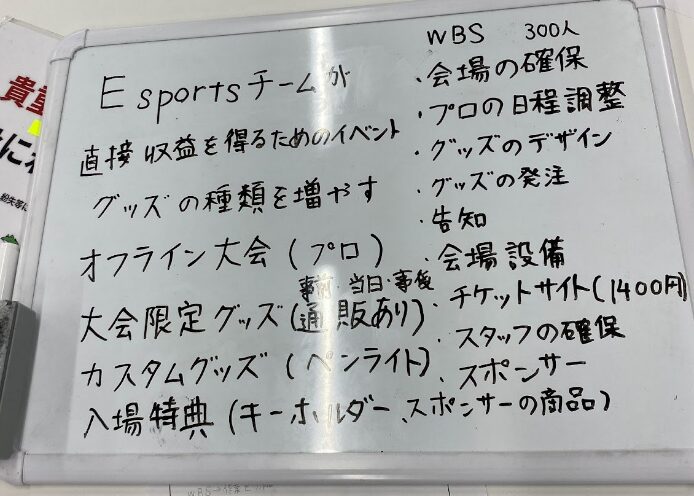 Esportsチームが
直接収益を得るためのイベント
グッズの種類を増やす
オフライン大会(プロ)
事前・当日・事後
大会限定グッズ(通販あり)
カスタムグッズ(ペンライト)
入場特典(キーホルダー、スポンサーの商品)
WBS 300人
・会場の確保
・プロの日程調整
・グッズのデザイン
・グッズの発注
・告知
・会場設備
・チケットサイト(1400円)
・スタッフの確保
・スポンサー
貴重